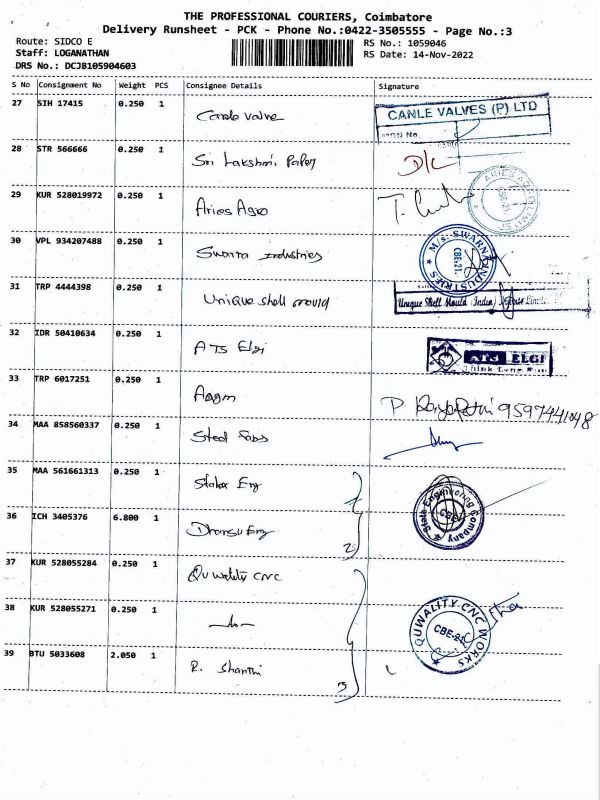 THE PROFESSIONAL COURIERS, Coimbatore
Delivery Runsheet - PCK - Phone No.:0422-3505555 - Page No.:3
Route: SIDCO E
RS No.: 1059046
Staff: LOGANATHAN
RS Date: 14-Nov-2022
DRS No.: DCJB105904603
S No Consignment No Weight PCS Consignee Details Signature
27 SIH 17415 0.250 1 Canle valve CANLE VALVES (P) LTD
28 STR 566666 0.250 1 Sri Lakshmi Paper D/C
29 KUR 528019972 0.250 1 Aries Agro
30 VPL 934207488 0.250 1 Swarna Industries M/s. SWARNA INDUSTRIES CBE-21
31 TRP 4444398 0.250 1 Unique shell mould Unique Shell Mould (India) Private Limited
32 IDR 50410634 0.250 1 ATS Elgi ATS ELGI
33 TRP 6017251 0.250 1 9597441048
34 MAA 858560337 0.250 1 Steel Fabs
35 MAA 561661313 0.250 1 Engineering Company
36 ICH 3405376 6.800 1 2
37 KUR 528055284 0.250 1 Quwality CNC
38 KUR 528055271 0.250 1 QUWALITY CNC WORKS CBE-21
39 BTU 5033608 2.050 1 R. Shanthi 3